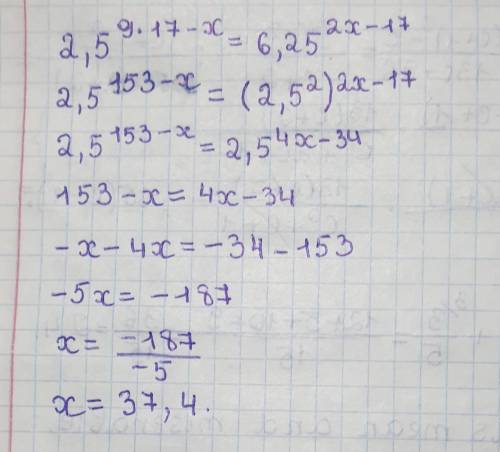 2,5^{9·17-x} = 6,25^{2x-17}
2,5^{153-x} = (2,5^2)^{2x-17}
2,5^{153-x} = 2,5^{4x-34}
153-x = 4x-34
-x-4x = -34-153
-5x = -187
x = \frac{-187}{-5}
x = 37,4.